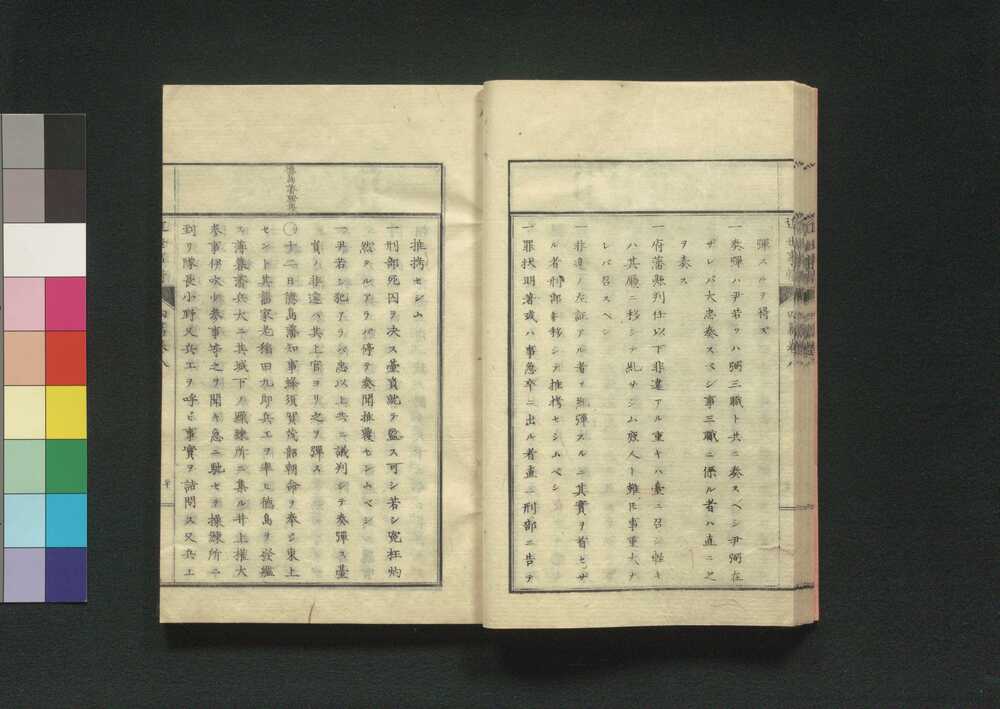 彈スルヲ得ス
一奏彈ハ尹若クハ弼三職ト共ニ奏スヘシ尹弼在
サレバ大忠奏スベシ事三職ニ係ル者ハ直ニ之
ヲ奏ス
一府藩縣判任以下非違アル重キハ臺ニ召シ輕キ
ハ其廳ニ移シテ糺サシム廢人ト雖𪜈事重大ナ
レバ召スベシ
一非違ノ左証アル者ヲ糺彈スルニ其實ヲ首セサ
ル者刑部ニ移シテ推拷セシムベシ
一罪状明著或ハ事急卒ニ出ル者直ニ刑部ニ告テ
推拷セシム
一刑部死囚ヲ決ス臺員就テ監ス可シ若シ冤枉灼
然タルアラバ停テ奏聞推覆センムベシ
一尹若シ犯アラバ忠以上共ニ議判シテ奏彈ス臺
員ノ非違ハ其上官ヨリ之ヲ彈ス
〇十二日德島藩知事蜂須賀茂韶朝命ヲ奉シ東上
セントス其藩家老稲田九郎兵エヲ率ヒ德島ヲ發艦
ス藩黨藩兵大ニ其城下ノ職練所ニ集ル井上權大
參事伊吹少參事等之ヲ聞キ急ニ馳セテ操練所ニ
到リ隊長小野又兵エヲ呼ヒ事實ヲ詰問ス又兵エ